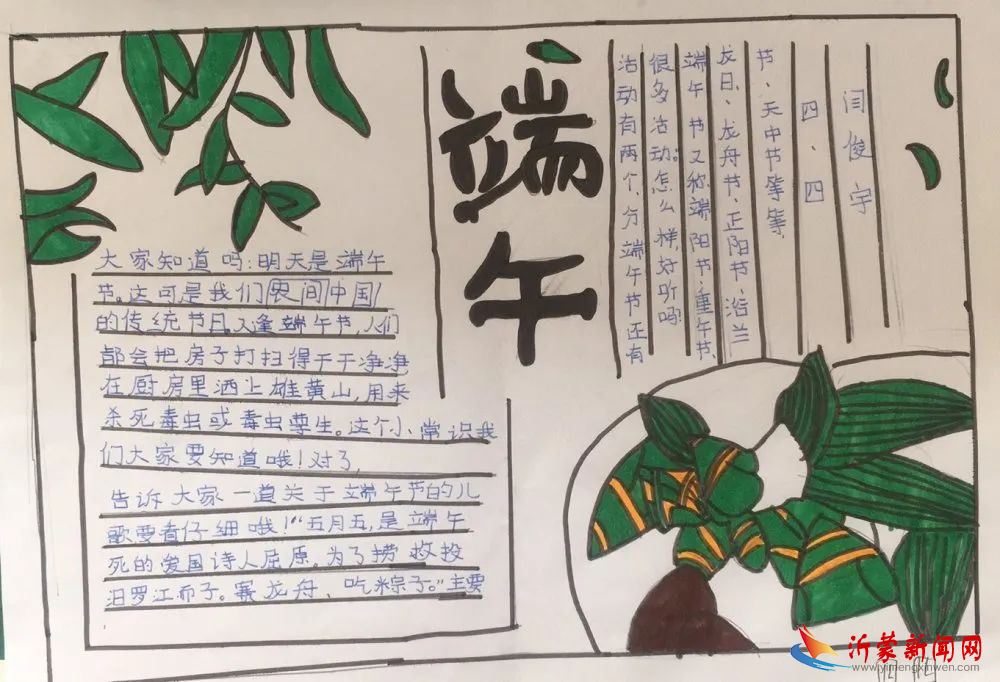 端午
大家知道吗:明天是端午
节。这可是我们民间中国
的传统节日。又逢端午节,人们
都会把房子打扫得干干净净
在厨房里洒上雄黄山,用来
杀死毒虫或毒虫孽生。这个小常识我
们大家要知道哦!对了,
告诉大家一道关于端午节的儿
歌要看仔细哦!“五月五,是端午
死的爱国诗人屈原。为了捞救投
汨罗江而子。赛龙舟、吃粽子。”主要
活动有两个,分端午节还有
很多活动。怎么样,好听吗?
端午节又称端阳节、重午节、
龙日、龙舟节、正阳节、浴兰
节、天中节等等。
四、四
闫俊宇
沂蒙新闻网
www.yimengxinwen.com